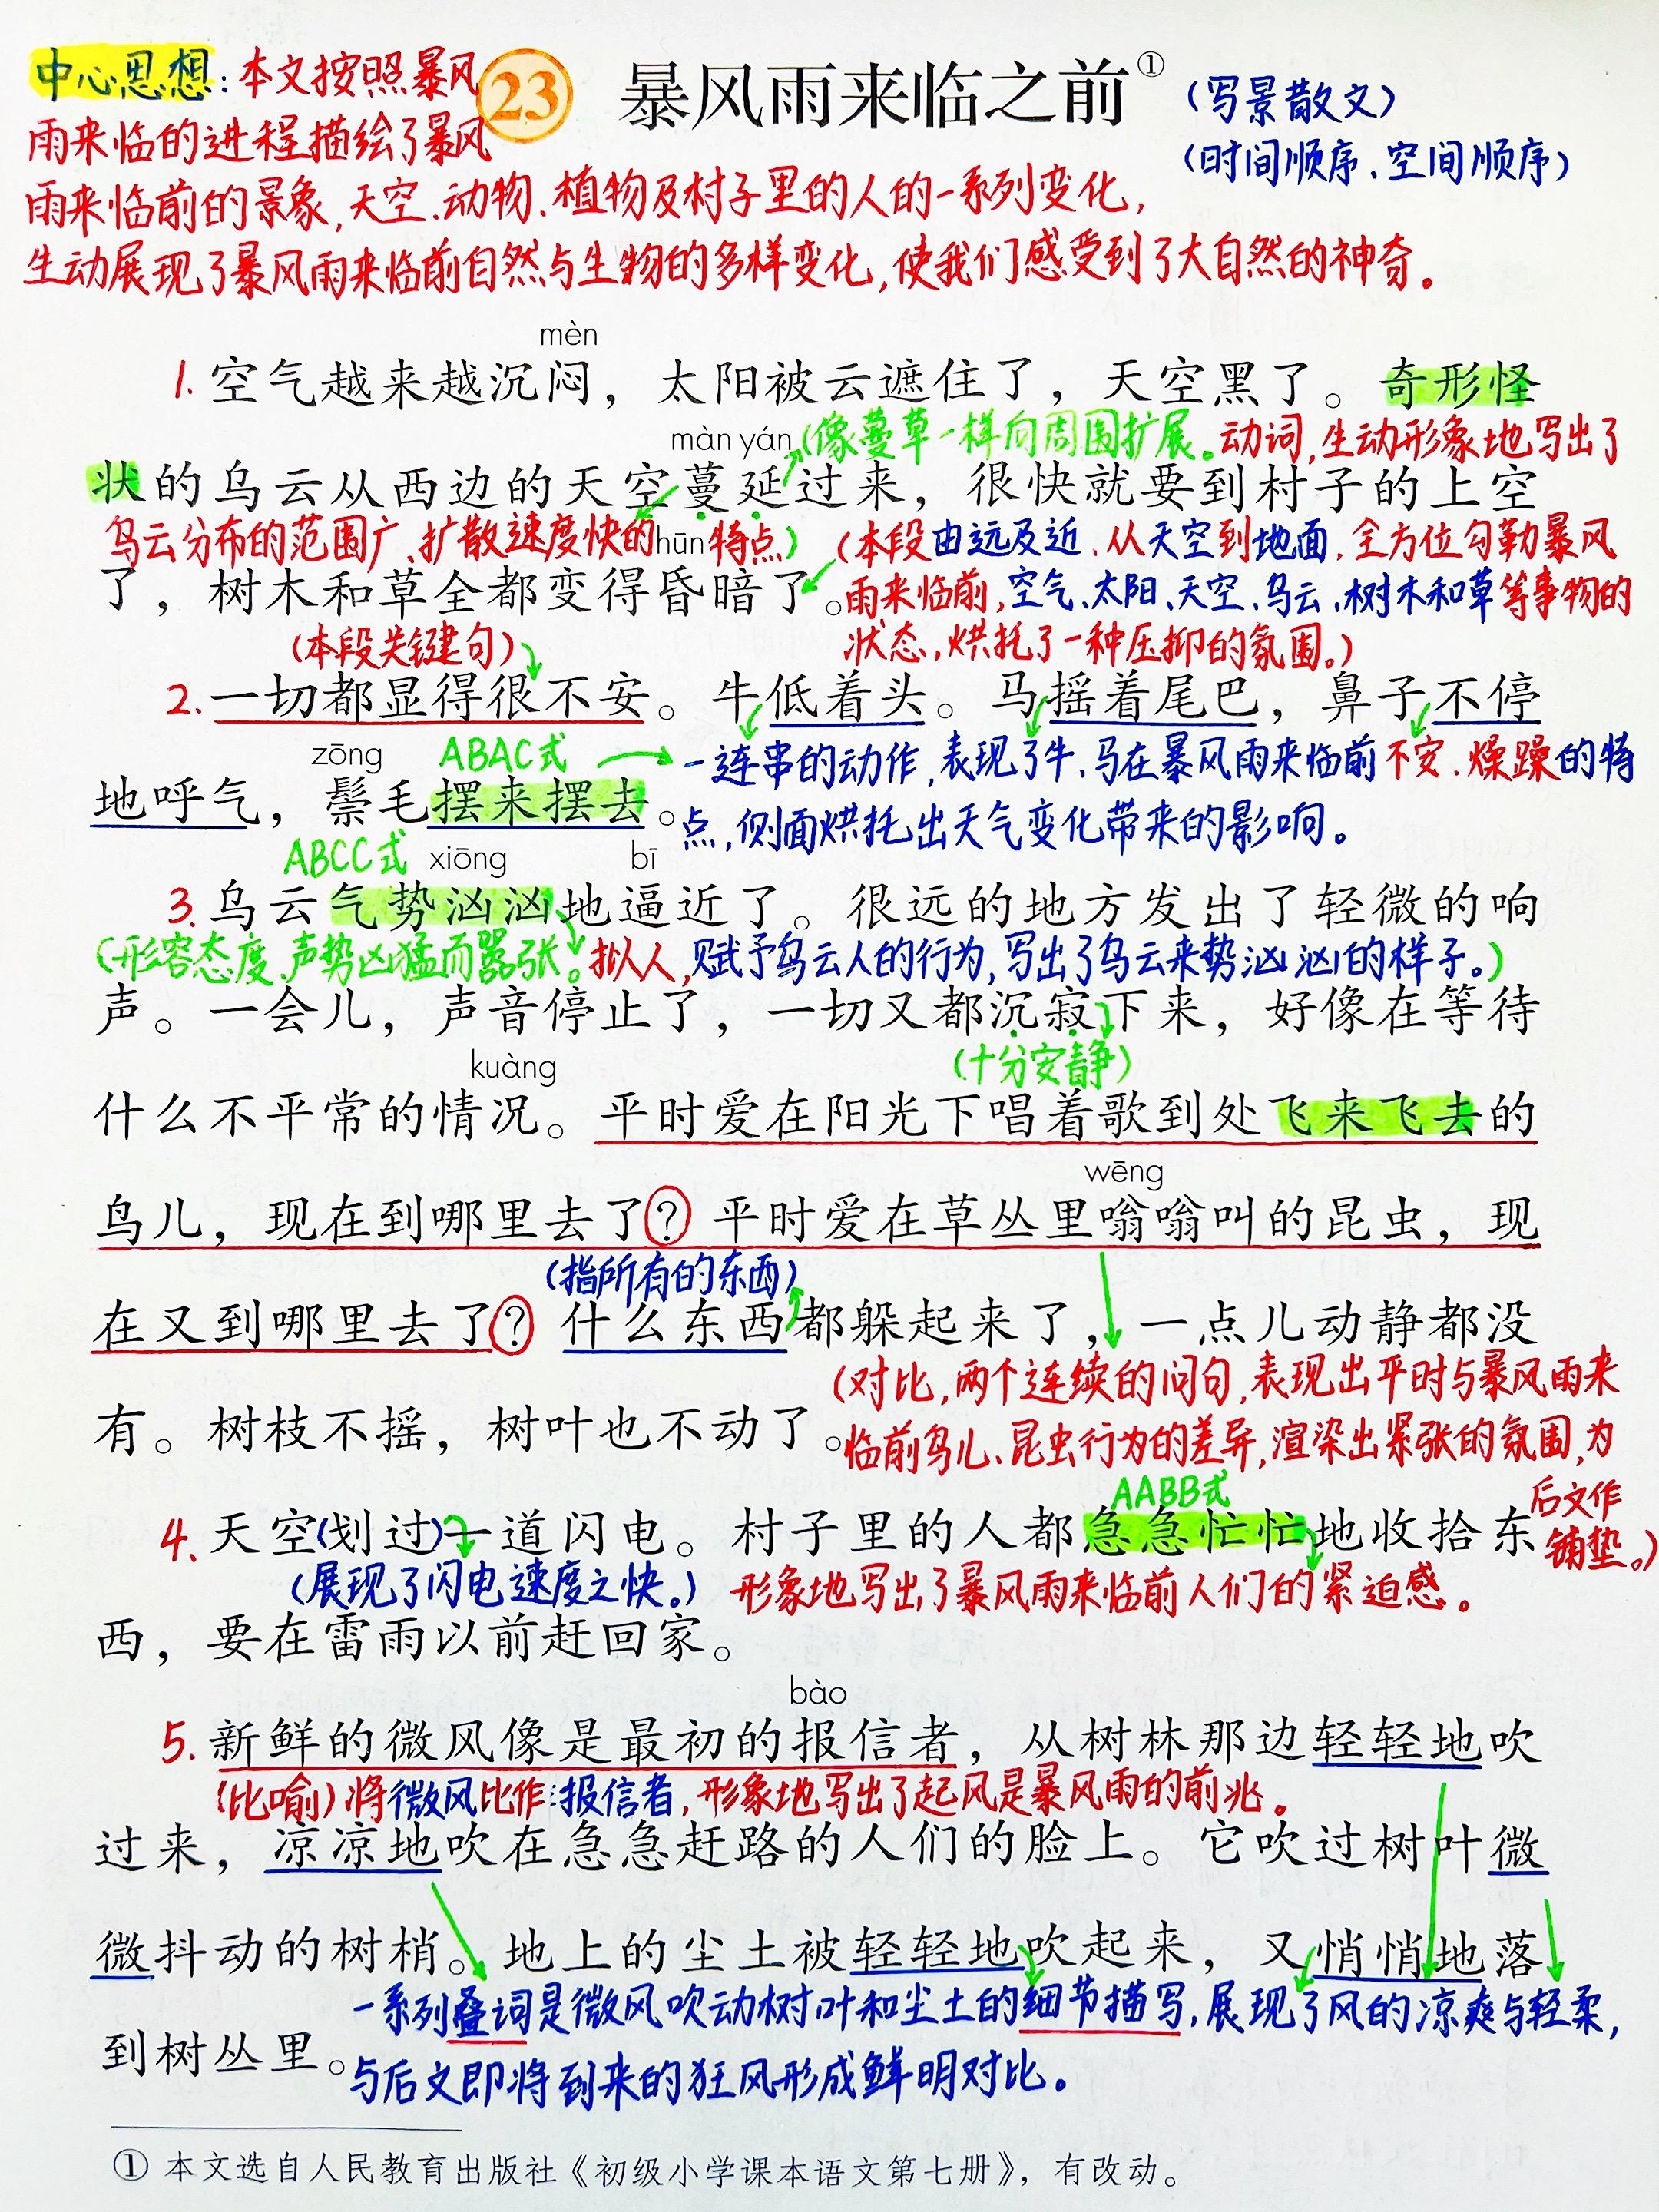 中心思想：本文按照暴风
23 暴风雨来临之前①
（写景散文）
雨来临的进程描绘了暴风
（时间顺序、空间顺序）
雨来临前的景象，天空、动物、植物及村子里的人的一系列变化，
生动展现了暴风雨来临前自然与生物的多样变化，使我们感受到了大自然的神奇。
mèn
1.空气越来越沉闷，太阳被云遮住了，天空黑了。奇形怪
màn yán（像蔓草一样向周围扩展。动词，生动形象地写出了
状的乌云从西边的天空蔓延过来，很快就要到村子的上空
乌云分布的范围广、扩散速度快的特点）
hūn
（本段由远及近、从天空到地面，全方位勾勒暴风
了，树木和草全都变得昏暗了。
雨来临前，空气、太阳、天空、乌云、树木和草等事物的
（本段关键句）
状态，烘托了一种压抑的氛围。）
2.一切都显得很不安。牛低着头。马摇着尾巴，鼻子不停
zōng ABAC式
一连串的动作，表现了牛、马在暴风雨来临前不安、燥躁的特
地呼气，鬃毛摆来摆去。
点，侧面烘托出天气变化带来的影响。
ABCC式 xiōng bī
3.乌云气势汹汹地逼近了。很远的地方发出了轻微的响
（形容态度、声势凶猛而嚣张。拟人，赋予乌云人的行为，写出了乌云来势汹汹的样子。）
声。一会儿，声音停止了，一切又都沉寂下来，好像在等待
kuàng （十分安静）
什么不平常的情况。平时爱在阳光下唱着歌到处飞来飞去的
wēng
鸟儿，现在到哪里去了？平时爱在草丛里嗡嗡叫的昆虫，现
（指所有的东西）
在又到哪里去了？什么东西都躲起来了，一点儿动静都没
（对比，两个连续的问句，表现出平时与暴风雨来
有。树枝不摇，树叶也不动了。
临前鸟儿、昆虫行为的差异，渲染出紧张的氛围，为
后文作
铺垫。）
AABB式
4.天空（划过）一道闪电。村子里的人都急急忙忙地收拾东
（展现了闪电速度之快。） 形象地写出了暴风雨来临前人们的紧迫感。
西，要在雷雨以前赶回家。
bào
5.新鲜的微风像是最初的报信者，从树林那边轻轻地吹
（比喻）将微风比作报信者，形象地写出了起风是暴风雨的前兆。
过来，凉凉地吹在急急赶路的人们的脸上。它吹过树叶微
微抖动的树梢。地上的尘土被轻轻地吹起来，又悄悄地落
一系列叠词是微风吹动树叶和尘土的细节描写，展现了风的凉爽与轻柔，
到树丛里。
与后文即将到来的狂风形成鲜明对比。
① 本文选自人民教育出版社《初级小学课本语文第七册》，有改动。